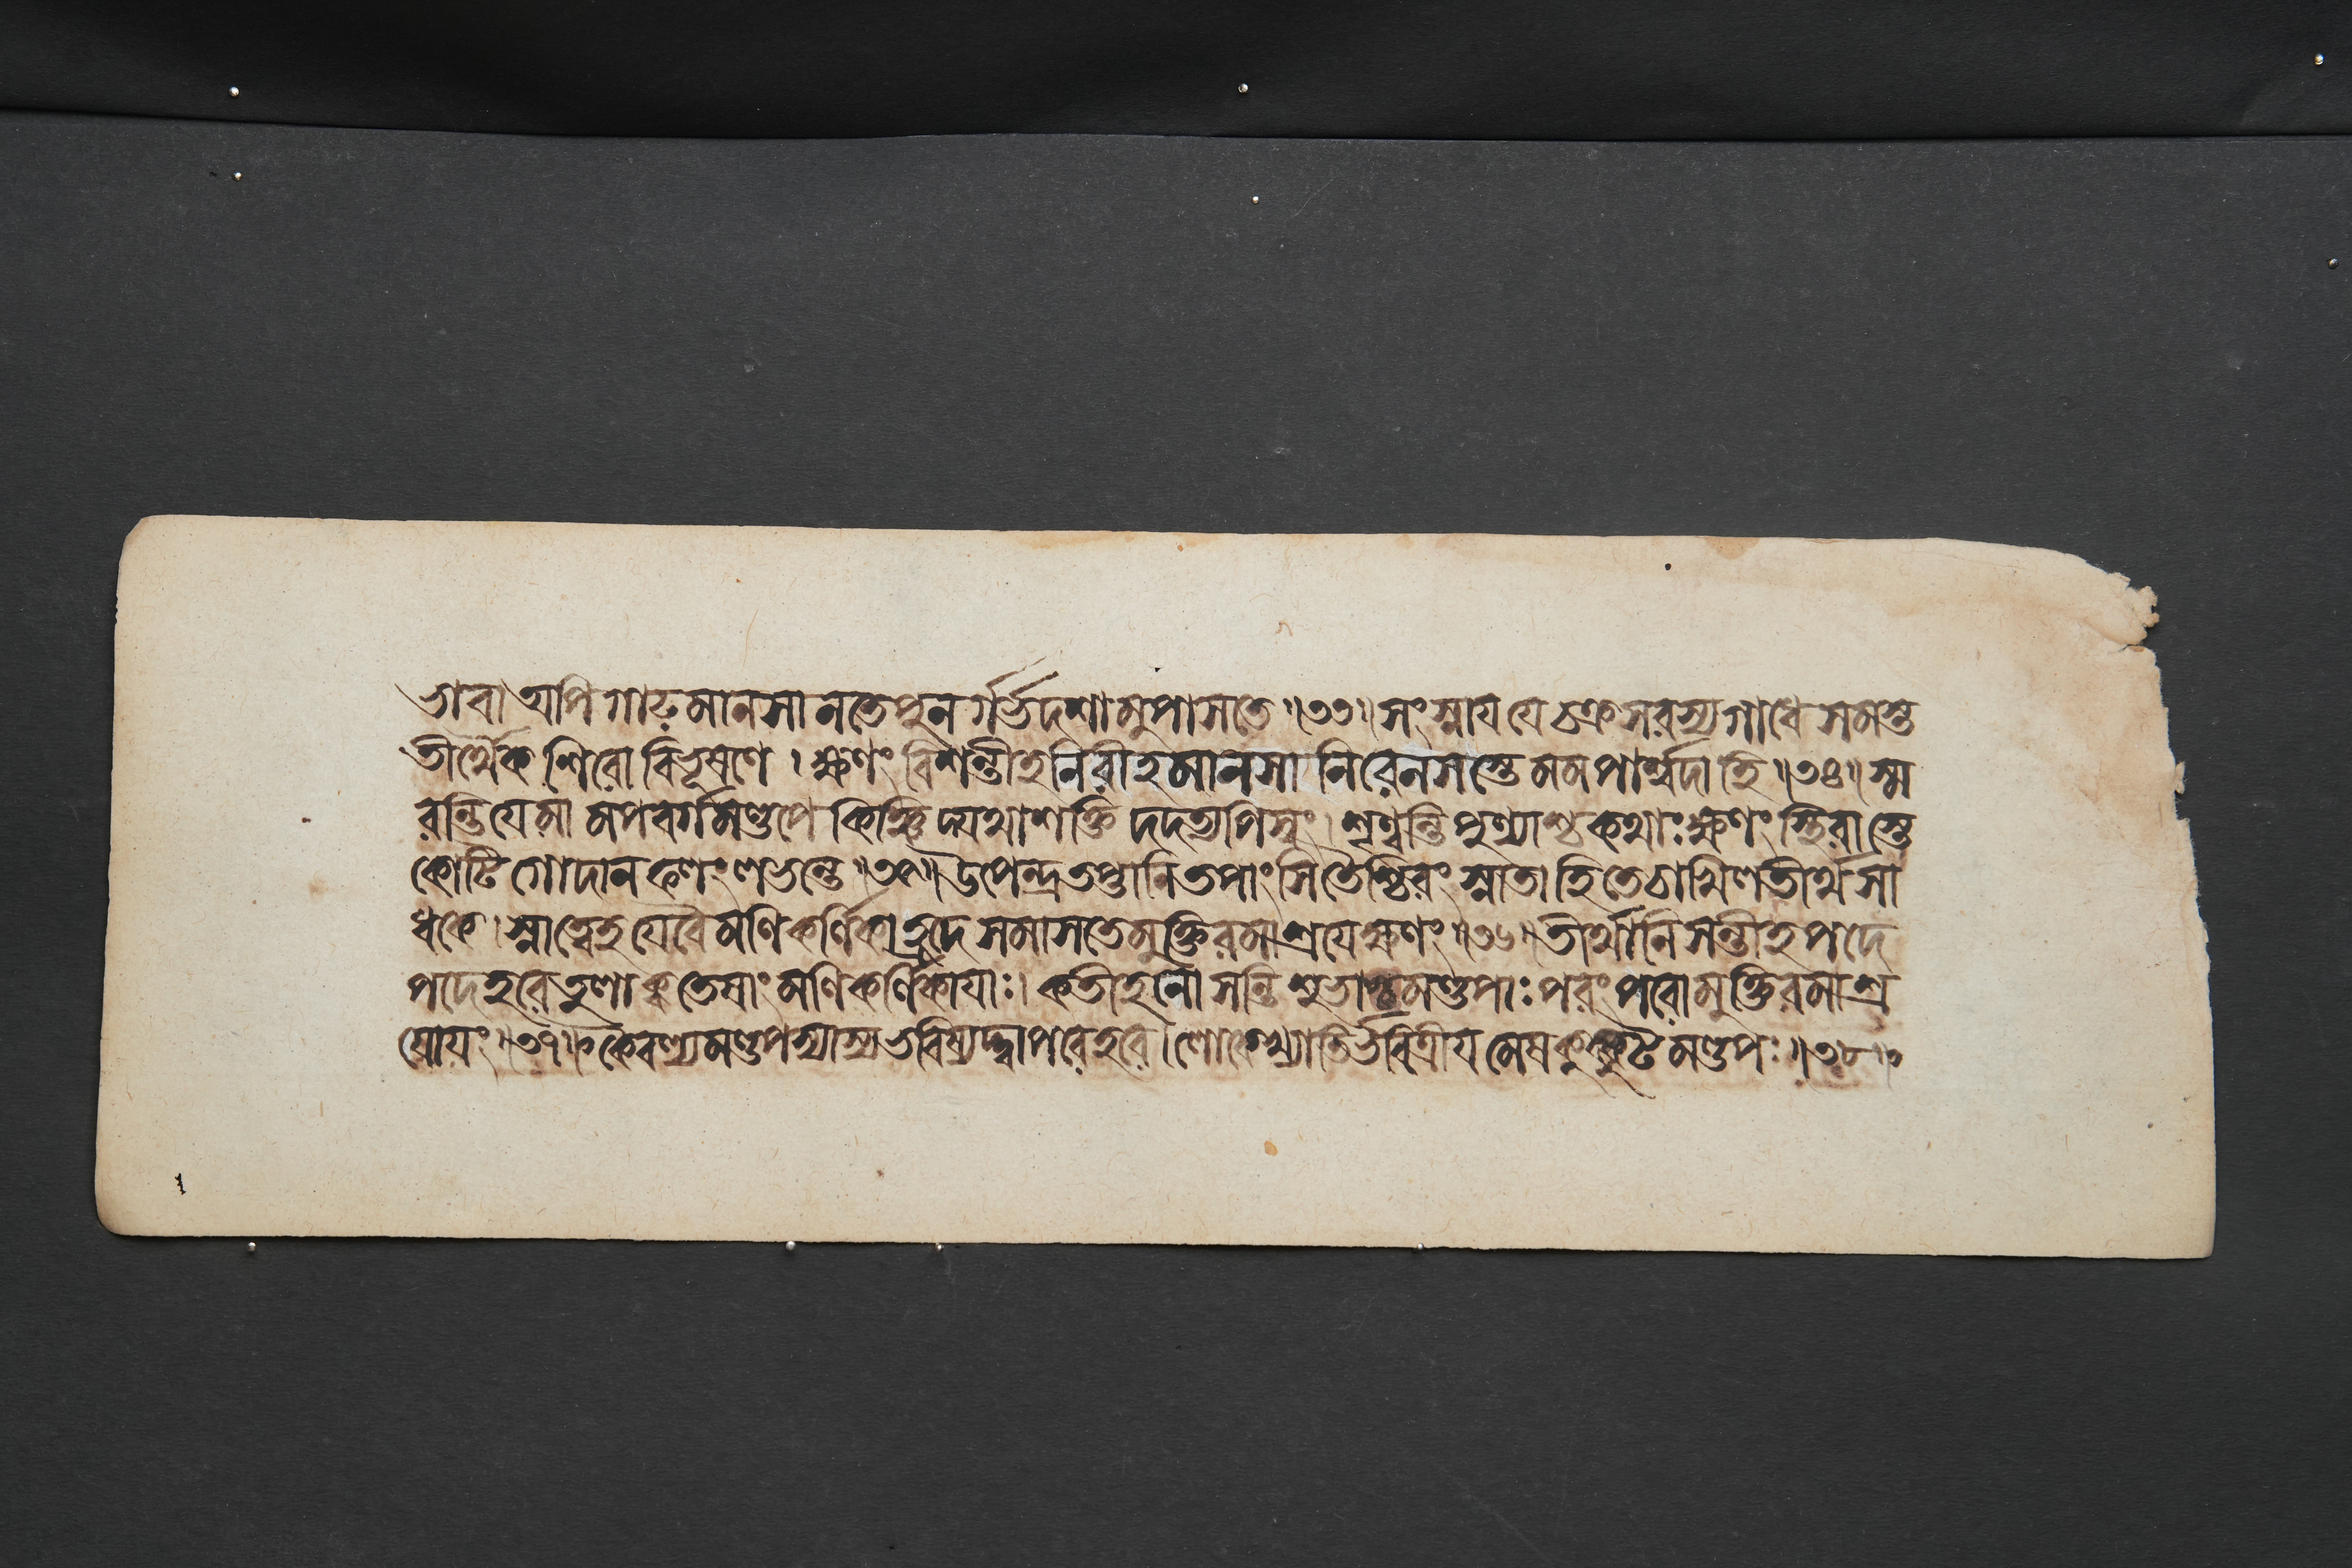 ভাবা অপি গাঢ়মানসা ন তে পুনর্গর্ভদশামুপাসতে ॥৩৩॥ সংস্নায যে চক্রসরস্যগাধে সমস্ত
তীর্থৈকশিরোবিভূষণে । ক্ষণং বিশন্তীহ নিরীহমানসা নিরেনসস্তে মম পার্শ্বদা হি ॥৩৪॥ স্ম
রন্তি যে মামপবর্গমণ্ডপে কিঞ্চিদ্যথাশক্তি দদত্যপি স্বং। শৃণ্বন্তি পুণ্যাশ্চ কথাঃ ক্ষণং স্থিরাস্তে
কোটিগোদানফলং লভন্তে ॥৩৫॥ উপেন্দ্র তপ্তানি তপাংসি তৈশ্চিরং স্নাতা হি তে চাখিলতীর্থসা
ধকে। স্নাত্বেহ যে বৈ মণিকর্ণিকাহ্রদে সমাসতে মুক্তিরমাশ্রযে ক্ষণং ॥৩৬॥ তীর্থানি সন্তীহ পদে
পদে হরে তুলা ক্ব তেষাং মণিকর্ণিকাযাঃ। কতীহ নো সন্তি শুভাশ্চ মণ্ডপাঃ পরং পরো মুক্তিরমাশ্র
যোযং ॥৩৭॥ কৈবল্যমণ্ডপস্যাস্য ভবিষ্যদ্দ্বাপরে হরে। লোকে খ্যাতির্ভবিত্রীযমেষ কুক্কুটমণ্ডপঃ ॥৩৮॥